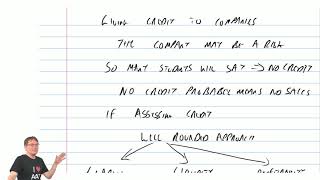 GIVING CREDIT TO COMPANIES
THE COMPANY MAY BE A RISK
SO MANY STUDENTS WILL SAY => NO CREDIT
NO CREDIT PROBABLE MEANS NO SALES
IF ASSESSING CREDIT
WELL ROUNDED APPROACH
I ♥
AAT